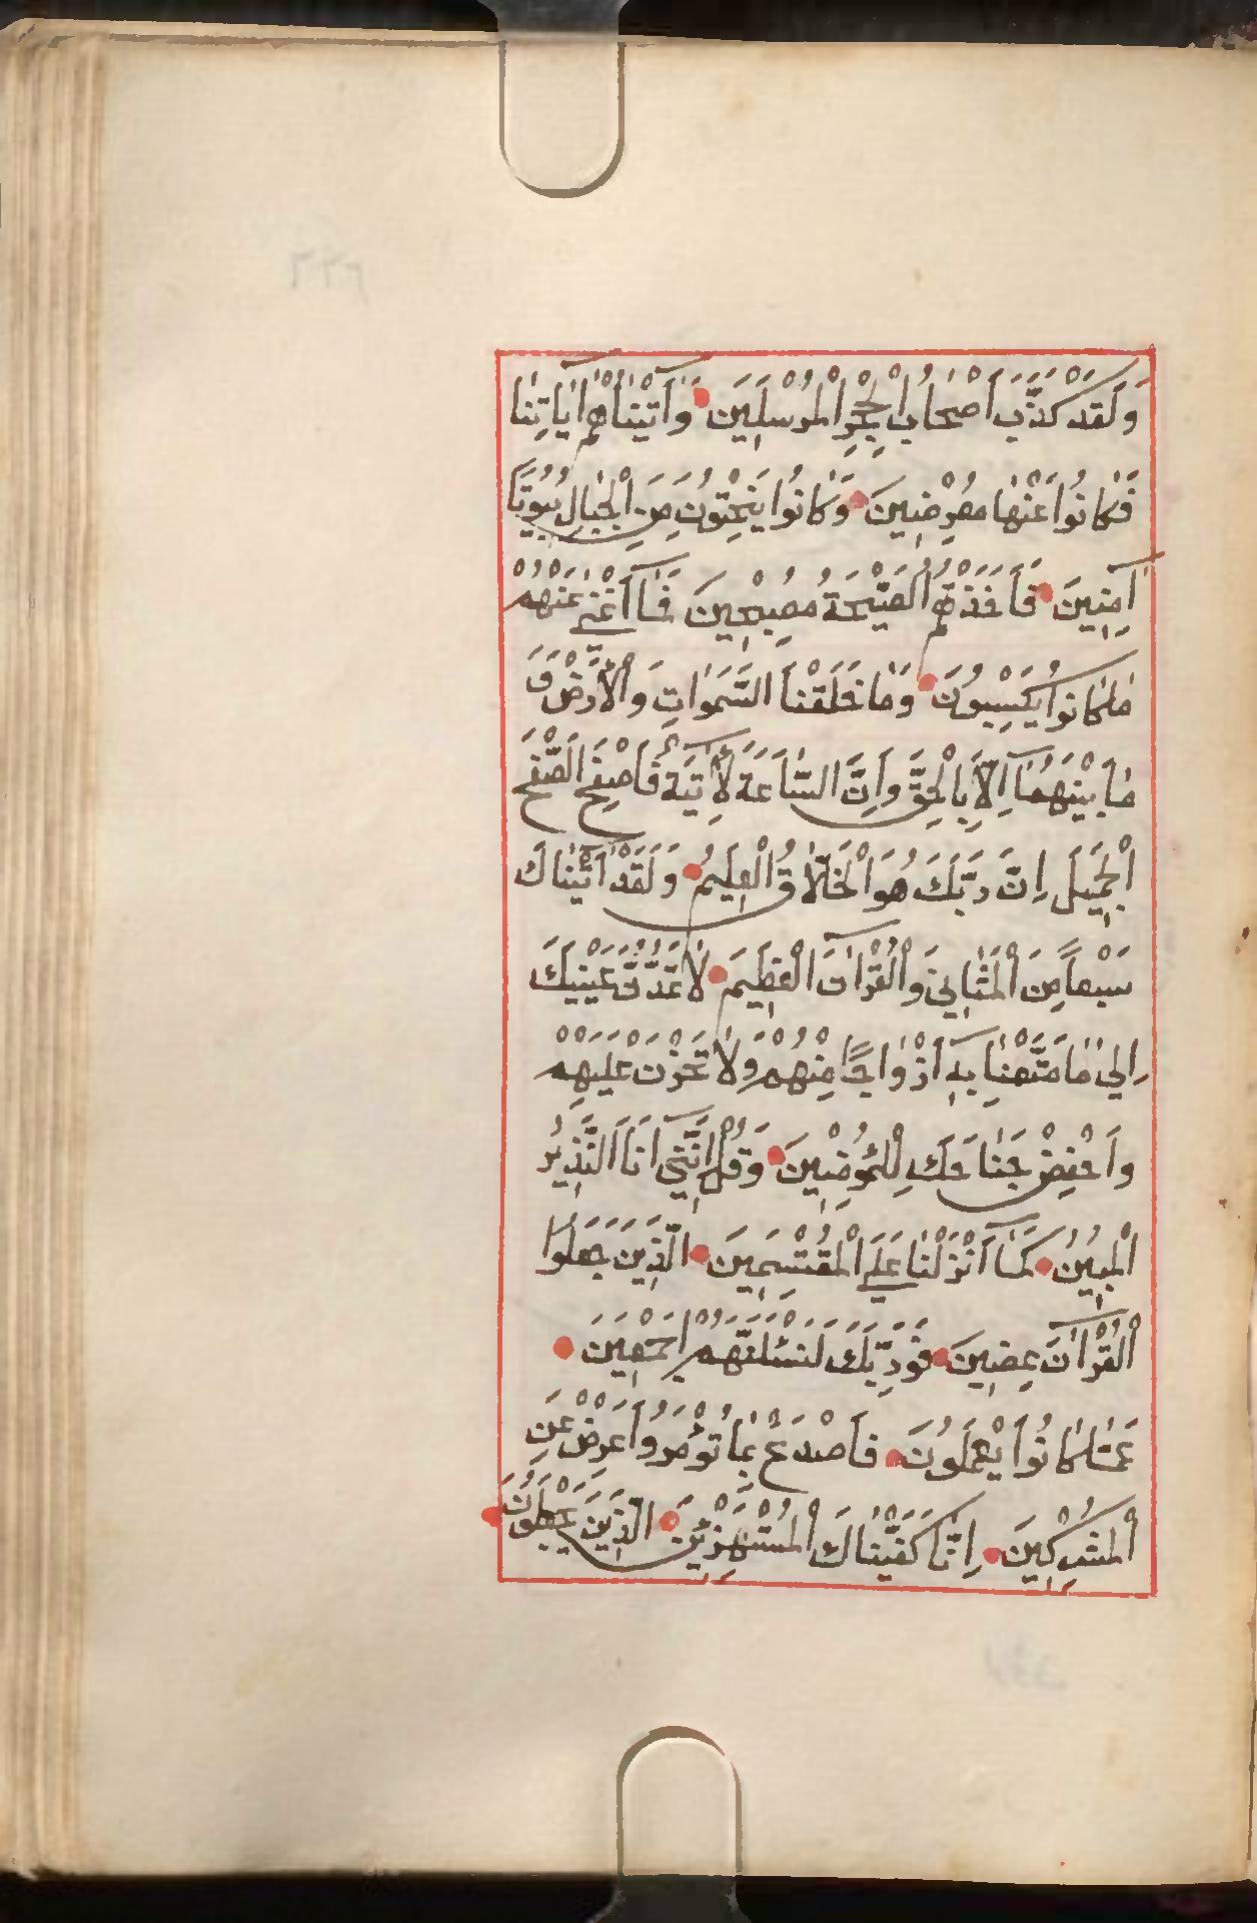 وَلَقَدْ كَذَّبَ اَصْحَابُ الْحِجْرِ الْمُرْسَلِينَ وَاٰتَيْنَاهُمْ اٰيَاتِنَا
فَكَانُوا عَنْهَا مُعْرِضِينَ وَكَانُوا يَنْحِتُونَ مِنَ الْجِبَالِ بُيُوتًا
اٰمِنِينَ فَاَخَذَتْهُمُ الصَّيْحَةُ مُصْبِحِينَ فَمَا اَغْنٰى عَنْهُمْ
مَا كَانُوا يَكْسِبُونَ وَمَا خَلَقْنَا السَّمَوَاتِ وَالْاَرْضَ وَ
مَا بَيْنَهُمَا اِلَّا بِالْحَقِّ وَاِنَّ السَّاعَةَ لَاٰتِيَةٌ فَاصْفَحِ الصَّفْحَ
الْجَمِيلَ اِنَّ رَبَّكَ هُوَ الْخَلَّاقُ الْعَلِيمُ وَلَقَدْ اٰتَيْنَاكَ
سَبْعاً مِنَ الْمَثَانِي وَالْقُرْاٰنَ الْعَظِيمَ لَا تَمُدَّنَّ عَيْنَيْكَ
اِلٰى مَا مَتَّعْنَا بِهِ اَزْوَاجًا مِنْهُمْ وَلَا تَحْزَنْ عَلَيْهِمْ
وَاخْفِضْ جَنَاحَكَ لِلْمُؤْمِنِينَ وَقُلْ اِنِّي اَنَا النَّذِيرُ
الْمُبِينُ كَمَا اَنْزَلْنَا عَلَى الْمُقْتَسِمِينَ الَّذِينَ جَعَلُوا
الْقُرْاٰنَ عِضِينَ فَوَرَبِّكَ لَنَسْئَلَنَّهُمْ اَجْمَعِينَ
عَمَّا كَانُوا يَعْمَلُونَ فَاصْدَعْ بِمَا تُؤْمَرُ وَاَعْرِضْ عَنِ
الْمُشْرِكِينَ اِنَّا كَفَيْنَاكَ الْمُسْتَهْزِئِينَ الَّذِينَ يَجْعَلُونَ